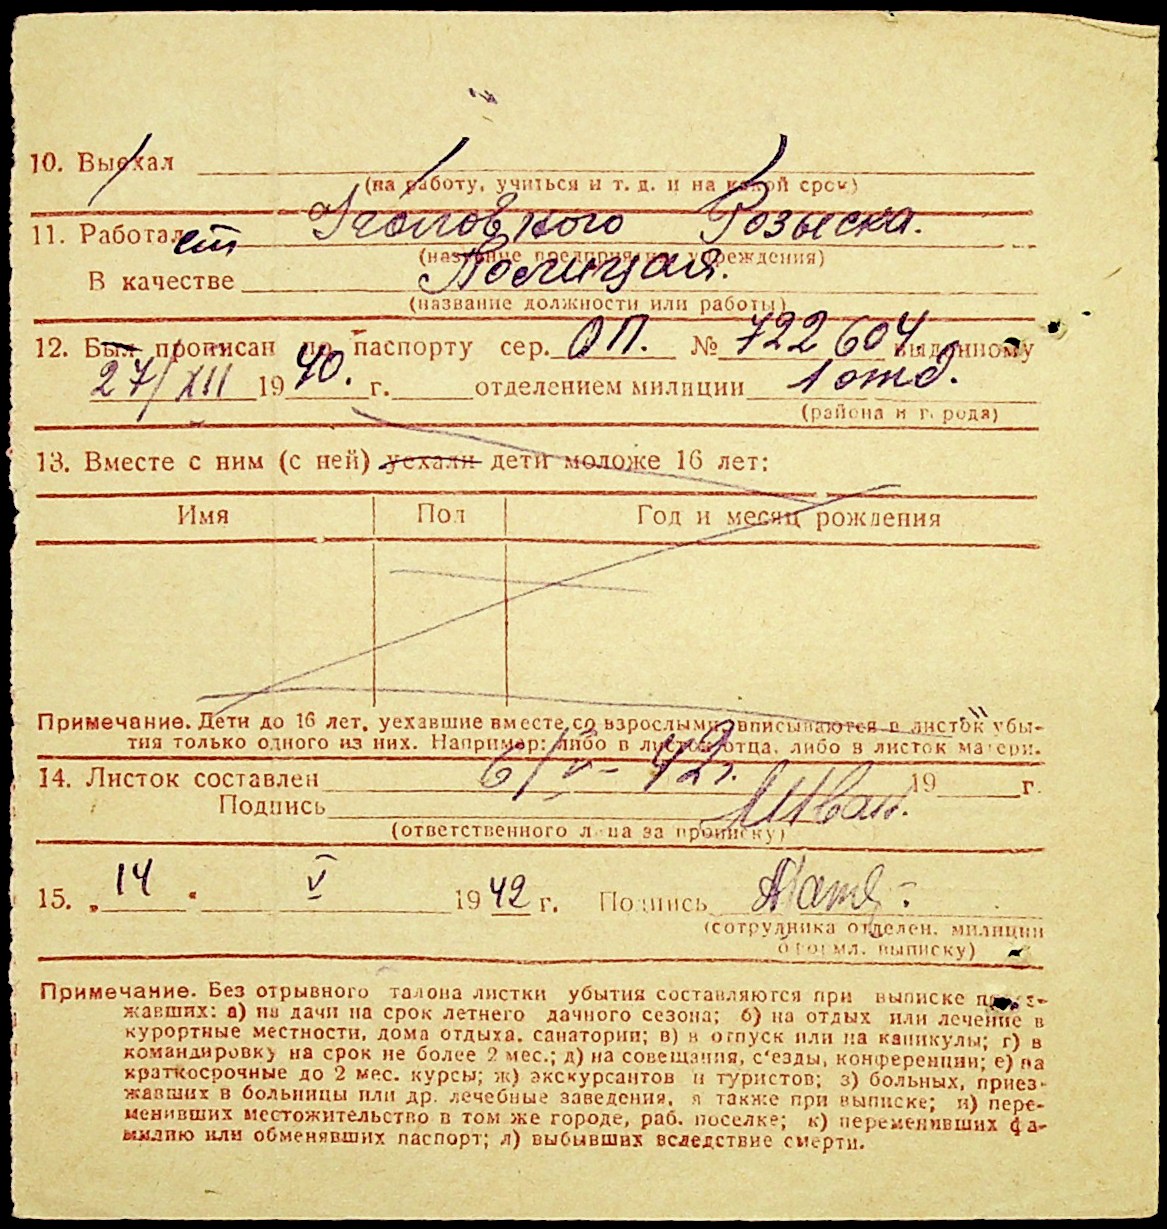 10. Выехал
(на работу, учиться и т. д. и на какой срок)
Уголовного Розыска.
11. Работал ет
(название предприятия, учреждения)
В качестве Полицая.
(название должности или работы)
12. Был прописан по паспорту сер. ОП. № 722604 выданному
27/XII 1940. г. отделением милиции 1 отд.
(района и города)
13. Вместе с ним (с ней) уехали дети моложе 16 лет:
Имя Пол Год и месяц рождения
Примечание. Дети до 16 лет, уехавшие вместе со взрослыми, вписываются в листок убы-
тия только одного из них. Например: либо в листок отца, либо в листок матери.
14. Листок составлен 6/V-42г. 19 г.
Подпись
(ответственного лица за прописку)
15. „14“ V 1942 г. Подпись
(сотрудника отделен. милиции
оформл. выписку)
Примечание. Без отрывного талона листки убытия составляются при выписке приез-
жавших: а) на дачи на срок летнего дачного сезона; б) на отдых или лечение в
курортные местности, дома отдыха, санатории; в) в отпуск или на каникулы; г) в
командировку на срок не более 2 мес.; д) на совещания, с'езды, конференции; е) на
краткосрочные до 2 мес. курсы; ж) экскурсантов и туристов; з) больных, приез-
жавших в больницы или др. лечебные заведения, а также при выписке; и) пере-
менивших местожительство в том же городе, раб. поселке; к) переменивших фа-
милию или обменявших паспорт; л) выбывших вследствие смерти.